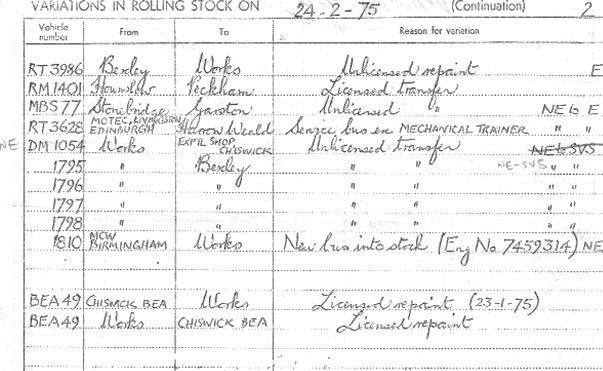 VARIATIONS IN ROLLING STOCK ON 24-2-75 (Continuation) 2
Vehicle number From To Reason for variation
RT 3986 Bexley Works Unlicensed repaint E
RM 1401 Hounslow Peckham Licensed transfer
MBS 77 Stonebridge Garston Unlicensed " NE to E
RT 3628 MOTEC, LIVINGSTON EDINBURGH Harrow Weald Service bus en MECHANICAL TRAINER " "
NE DM 1054 Works EXPTL SHOP CHISWICK Unlicensed transfer NE to SVS
1795 " Bexley " " NE-SVS " "
1796 " " " " " "
1797 " " " " " "
1798 " " " " " "
1810 MCW BIRMINGHAM Works New bus into stock (Eng No 7459314) NE
BEA 49 CHISWICK BEA Works Licensed repaint (23-1-75)
BEA 49 Works CHISWICK BEA Licensed repaint